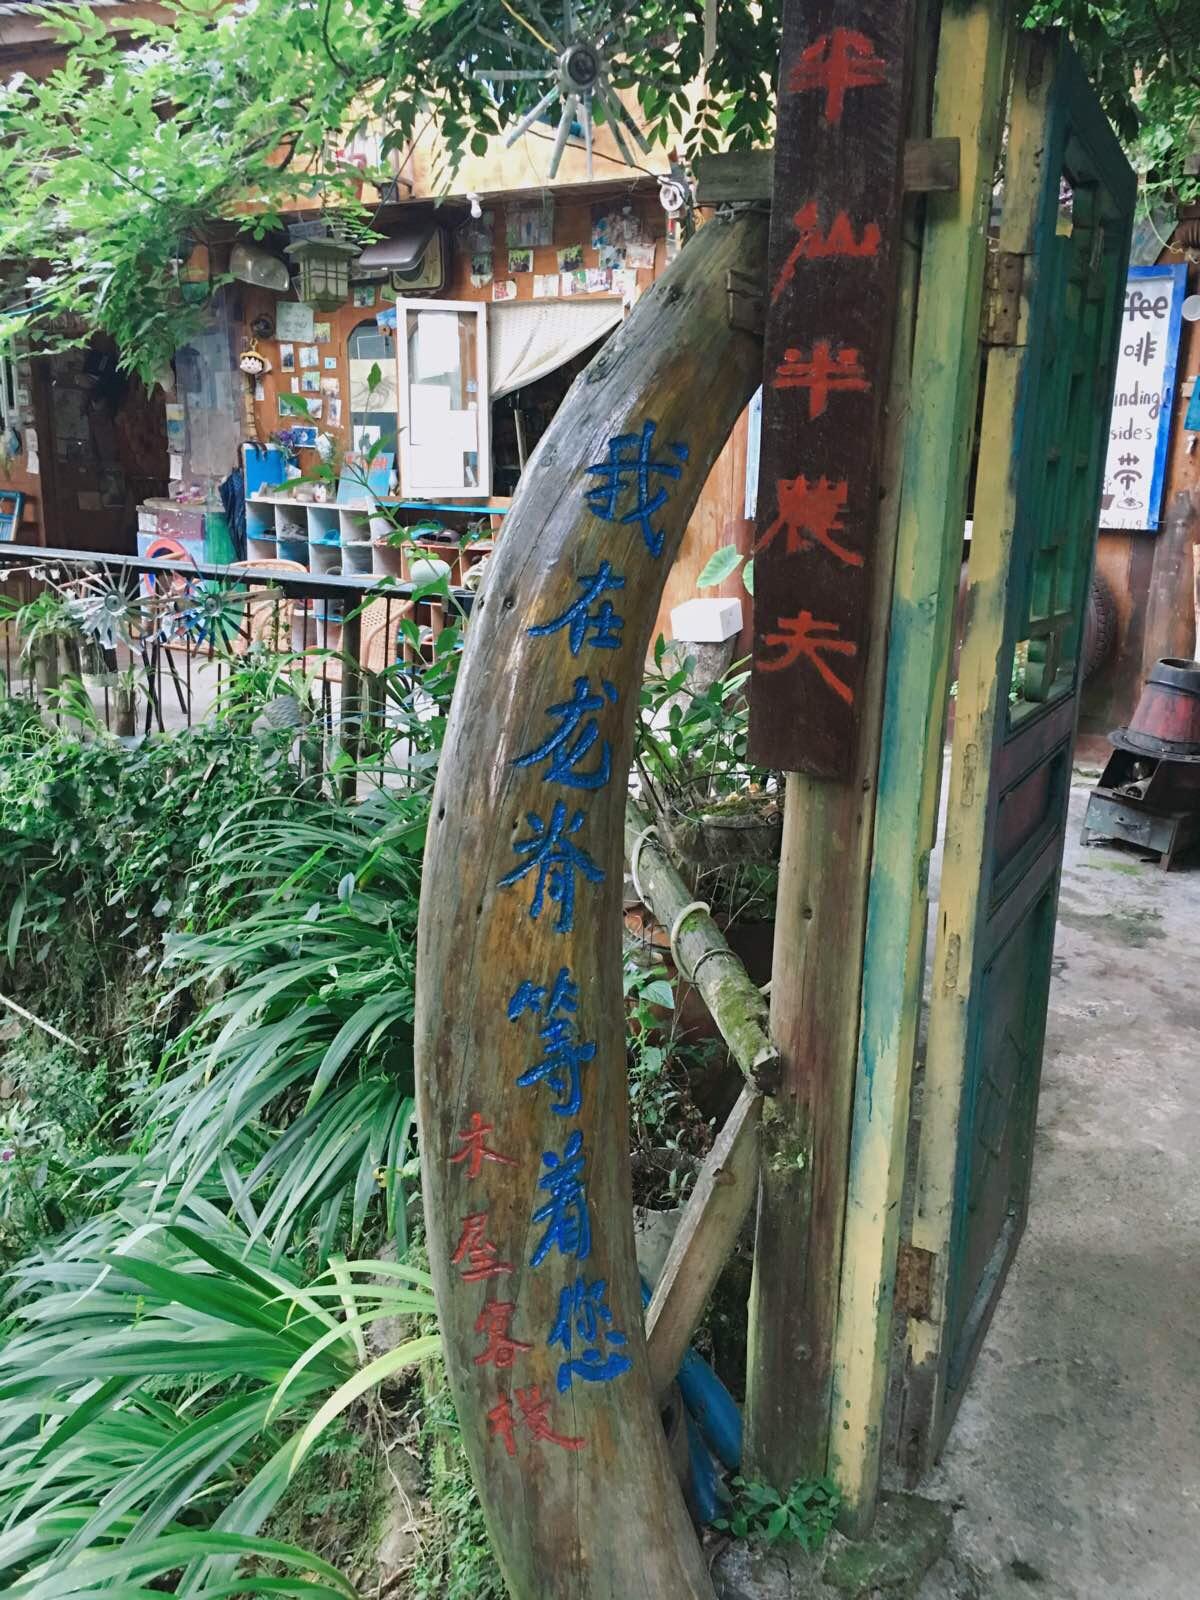 半仙半農夫
我在龙脊等着您
木屋客栈
ffee
啡
inding
sides